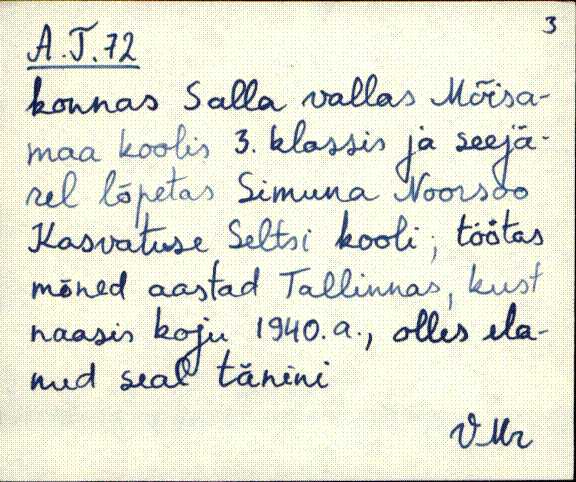 3
A.T.72
konnas Salla vallas Mõisa-
maa koolis 3. klassis ja seejä-
rel lõpetas Simuna Noorsoo
Kasvatuse Seltsi kooli; töötas
mõned aastad Tallinnas, kust
naasis koju 1940.a., olles ela-
nud seal tänini
VMr